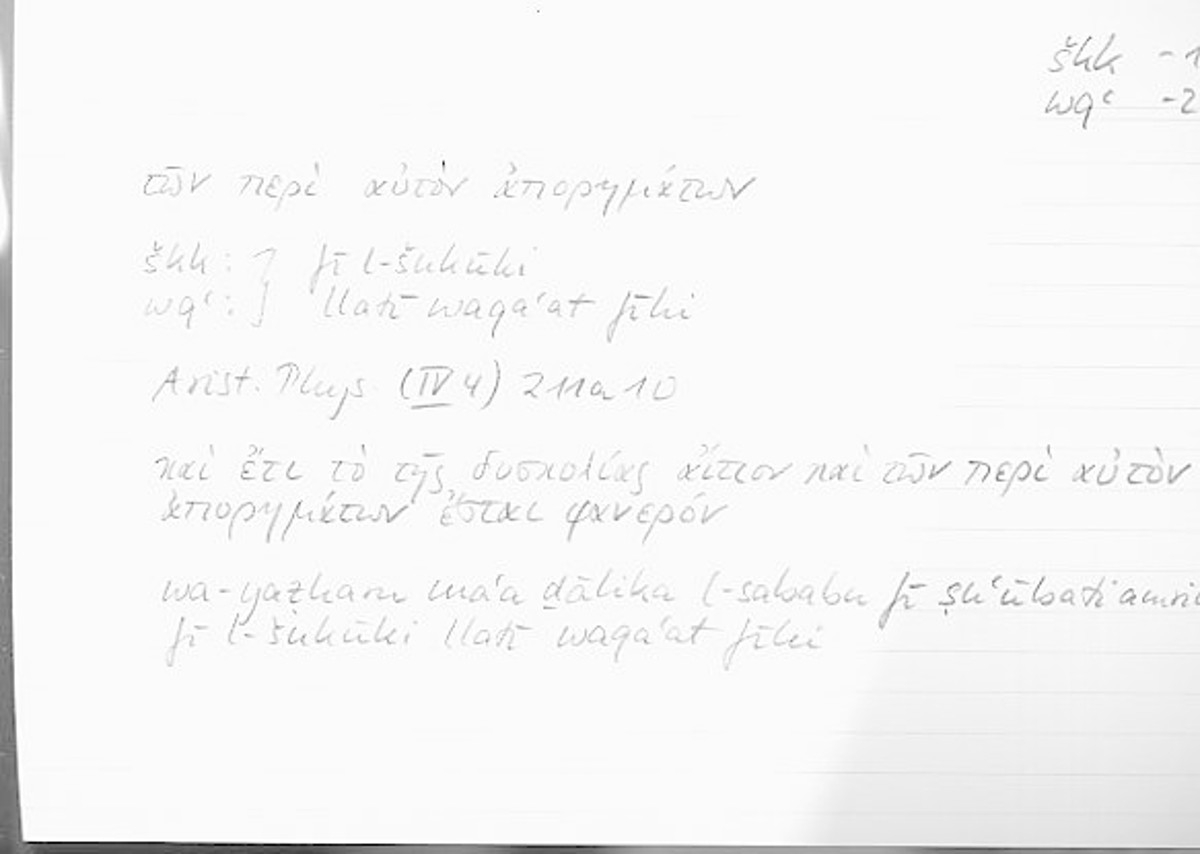 škk -1
wqʿ -2
τῶν περὶ αὐτὸν ἀπορημάτων
škk : } fī l-šukūki
wqʿ : } llatī waqaʿat fīhi
Arist. Phys (IV 4) 211a10
καὶ ἔτι τὸ τῆς δυσκολίας αἴτιον καὶ τῶν περὶ αὐτὸν
ἀπορημάτων ἔσται φανερόν
wa-yaẓharu maʿa ḏālika l-sababu fī ṣuʿūbati
fī l-šukūki llatī waqaʿat fīhi